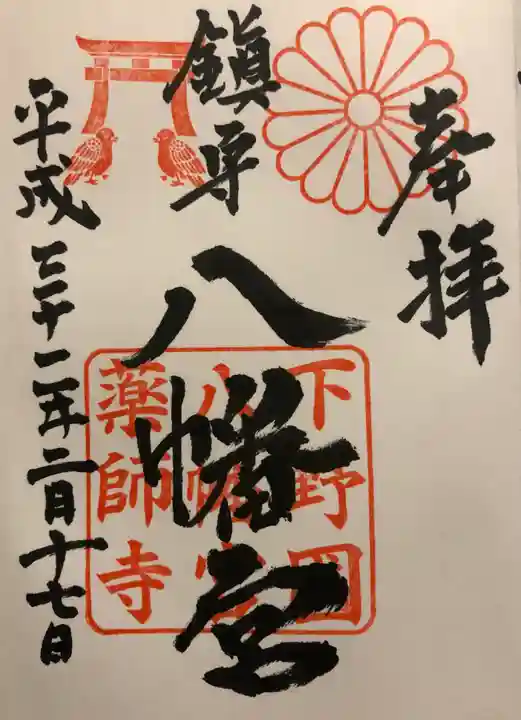 奉拝
鎮守
八幡宮
平成三十一年二月十七日
下野国
八幡宮
薬師寺